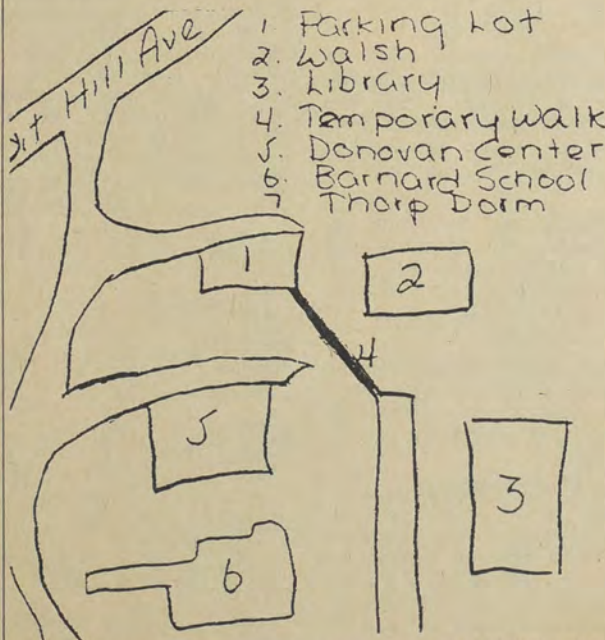 Hill Ave
1 Parking Lot
2. Walsh
3. Library
4. Temporary Walk
5. Donovan Center
6. Barnard School
7 Thorp Dorm
1
2
4
5
3
6